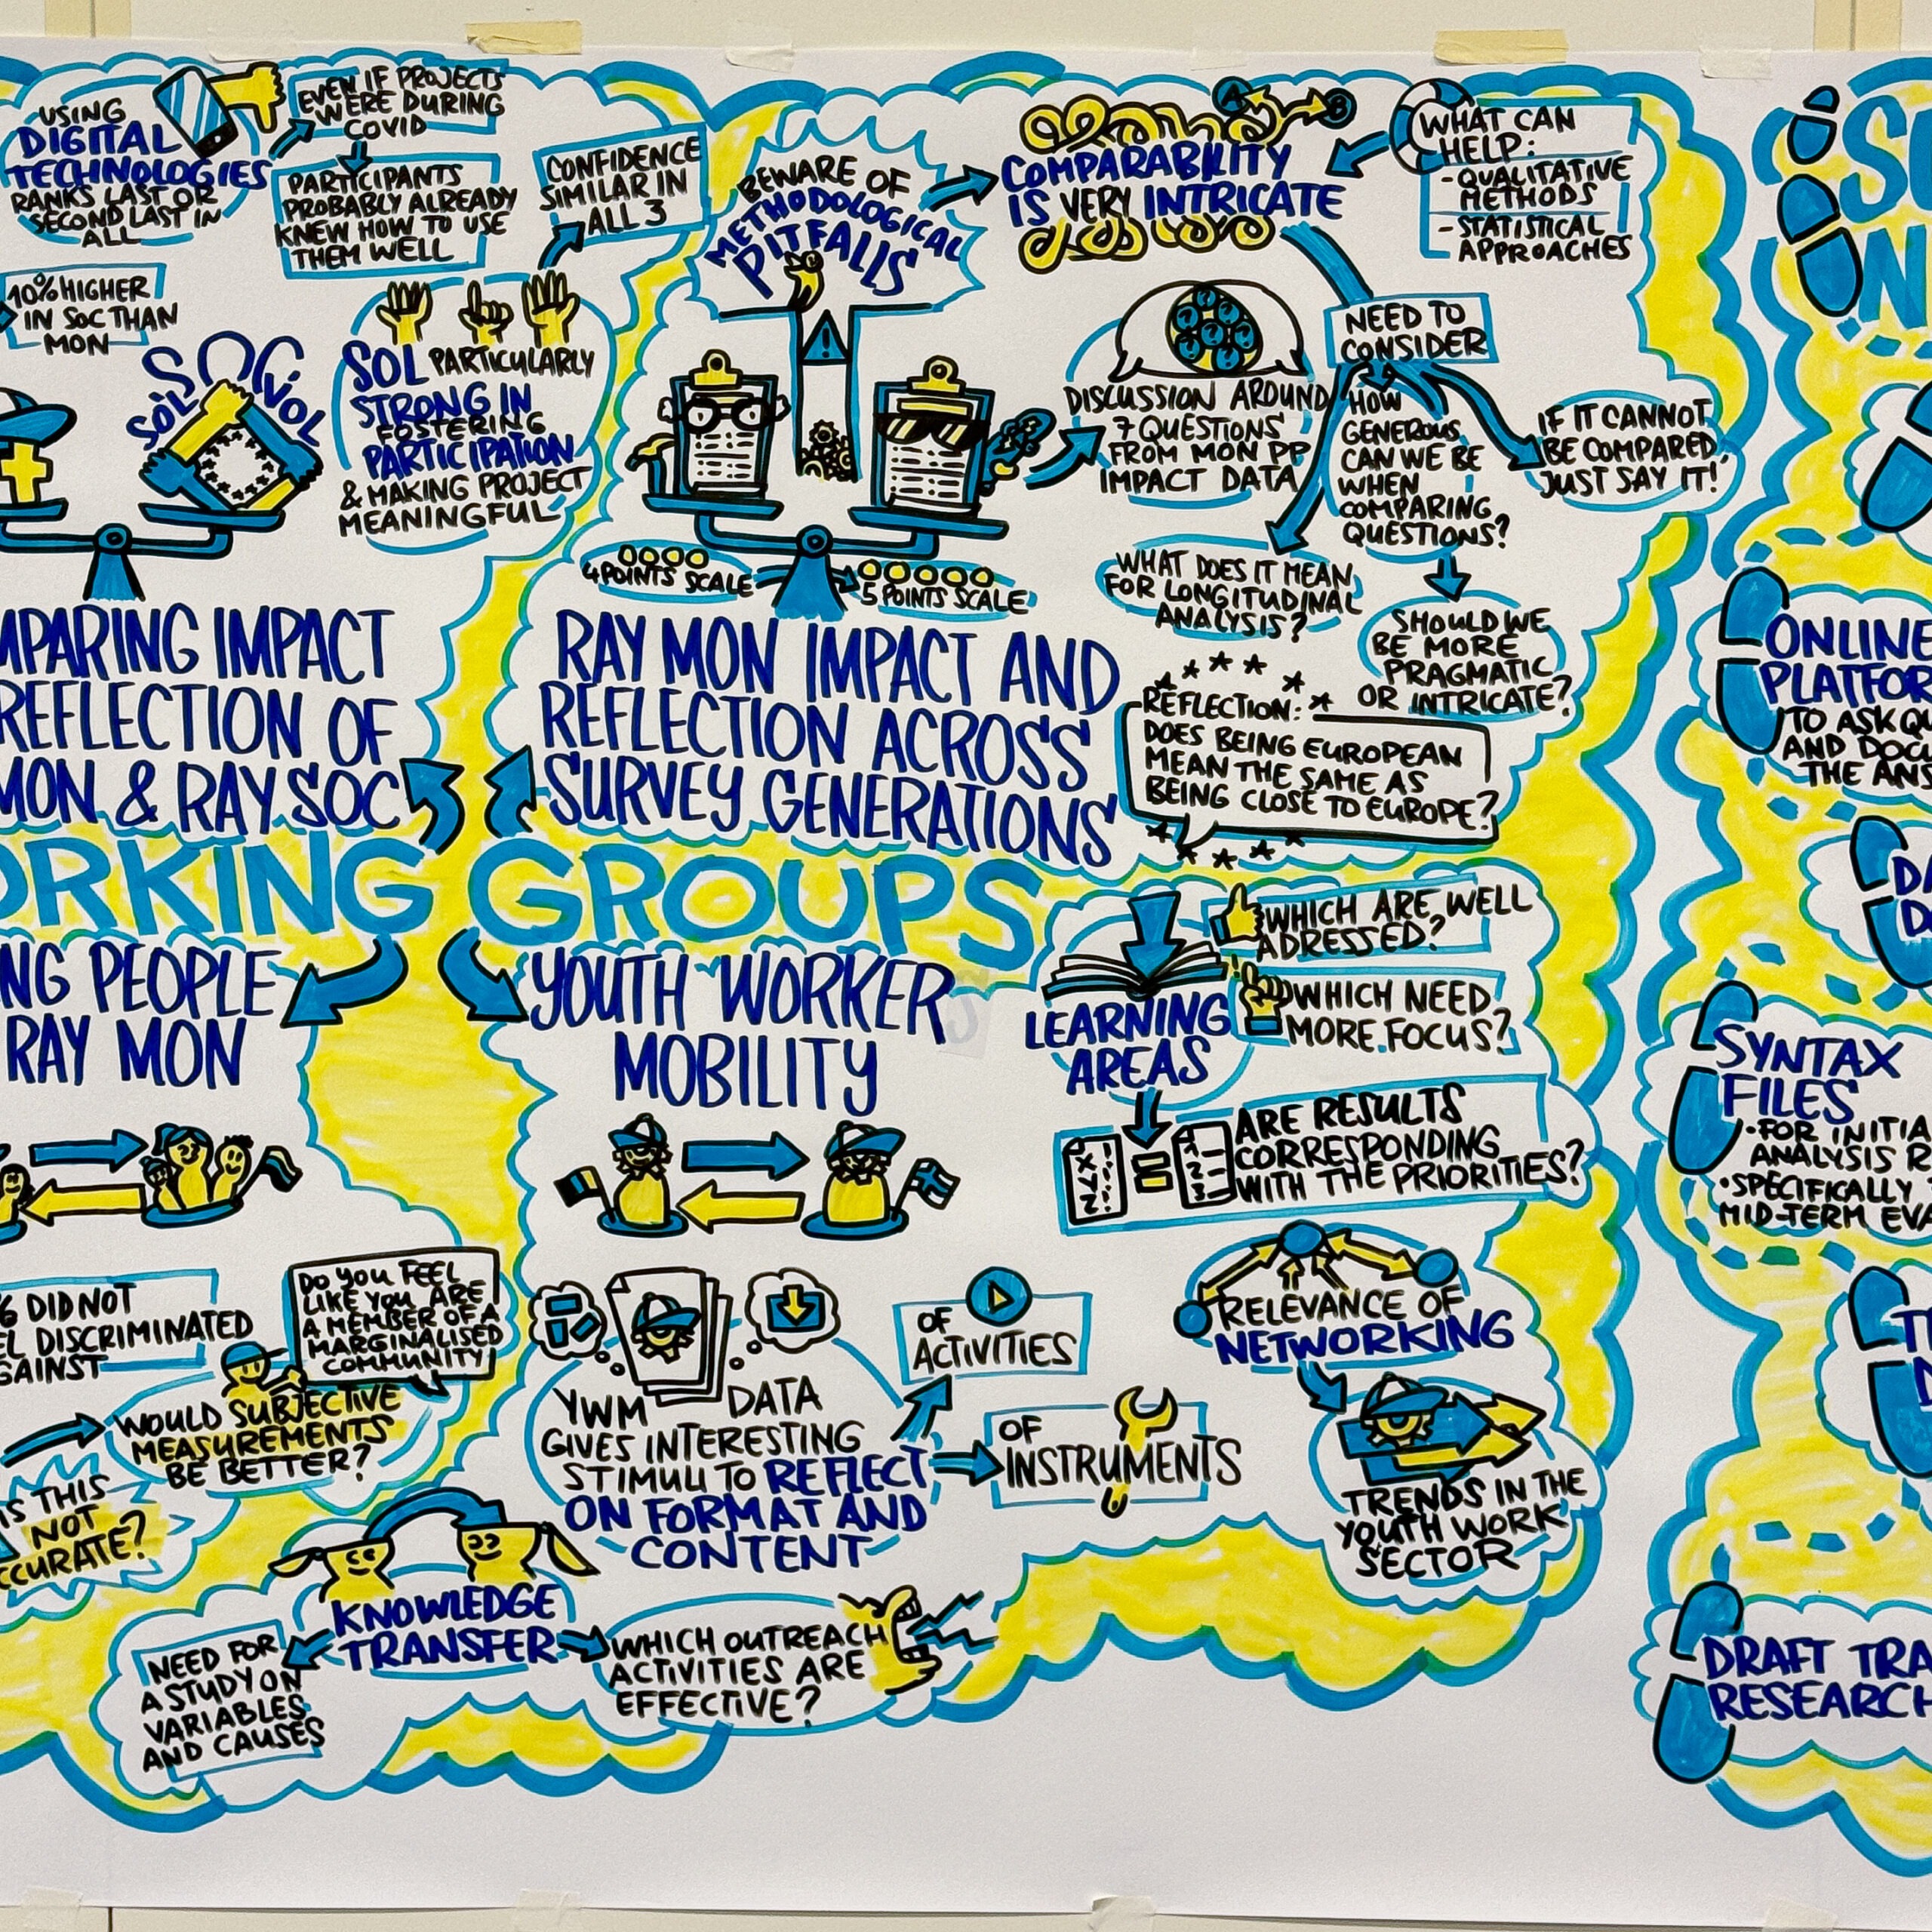 USING
DIGITAL
TECHNOLOGIES
RANKS LAST OR
SECOND LAST IN
ALL
EVEN IF PROJECTS
WERE DURING
COVID
PARTICIPANTS
PROBABLY ALREADY
KNEW HOW TO USE
THEM WELL
CONFIDENCE
SIMILAR IN
ALL 3
10% HIGHER
IN SOC THAN
MON
SOC
SOL
VOL
SOL PARTICULARLY
STRONG IN
FOSTERING
PARTICIPATION
& MAKING PROJECT
MEANINGFUL
MPARING IMPACT
REFLECTION OF
MON & RAY SOC
BEWARE OF
METHODOLOGICAL
PITFALLS
!
4 POINTS SCALE
5 POINTS SCALE
RAY MON IMPACT AND
REFLECTION ACROSS
SURVEY GENERATIONS
A
B
COMPARABILITY
IS VERY INTRICATE
WHAT CAN
HELP:
- QUALITATIVE
METHODS
- STATISTICAL
APPROACHES
? ? ? ? ? ? ?
DISCUSSION AROUND
7 QUESTIONS
FROM MON PP
IMPACT DATA
NEED TO
CONSIDER
HOW
GENEROUS
CAN WE BE
WHEN
COMPARING
QUESTIONS?
IF IT CANNOT
BE COMPARED,
JUST SAY IT!
WHAT DOES IT MEAN
FOR LONGITUDINAL
ANALYSIS?
SHOULD WE
BE MORE
PRAGMATIC
OR INTRICATE?
REFLECTION:
DOES BEING EUROPEAN
MEAN THE SAME AS
BEING CLOSE TO EUROPE?
ORKING GROUPS
NG PEOPLE
RAY MON
% DID NOT
EL DISCRIMINATED
GAINST
DO YOU FEEL
LIKE YOU ARE
A MEMBER OF A
MARGINALISED
COMMUNITY
WOULD SUBJECTIVE
MEASUREMENTS
BE BETTER?
IS THIS
NOT
CCURATE?
YOUTH WORKER
MOBILITY
LEARNING
AREAS
WHICH ARE WELL
ADRESSED?
WHICH NEED
MORE FOCUS?
X
Y
Z
1
2
3
ARE RESULTS
CORRESPONDING
WITH THE PRIORITIES?
YWM DATA
GIVES INTERESTING
STIMULI TO REFLECT
ON FORMAT AND
CONTENT
OF
ACTIVITIES
OF
INSTRUMENTS
RELEVANCE OF
NETWORKING
TRENDS IN THE
YOUTH WORK
SECTOR
KNOWLEDGE
TRANSFER
NEED FOR
A STUDY ON
VARIABLES
AND CAUSES
WHICH OUTREACH
ACTIVITIES ARE
EFFECTIVE?
ONLINE
PLATFOR
TO ASK QU
AND DOCU
THE ANS
DA
SYNTAX
FILES
• FOR INITIA
ANALYSIS R
• SPECIFICALLY
MID-TERM EVA
DRAFT TRA
RESEARCH